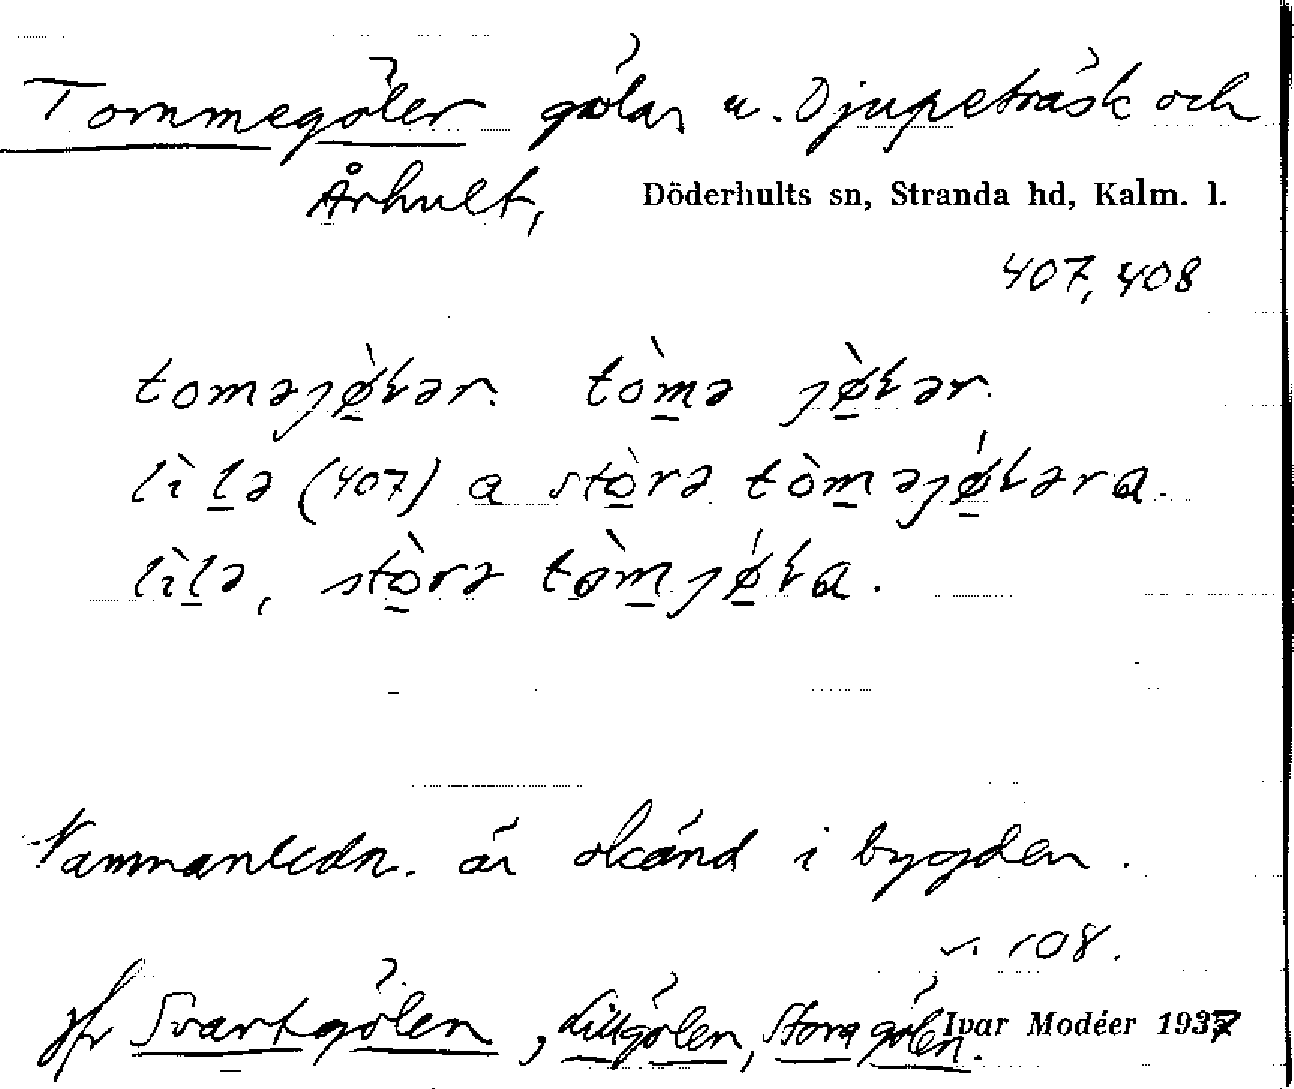 Tommegöler gölar u. Djupeträsk och
Århult, Döderhults sn, Stranda hd, Kalm. l.
407, 408
toməjø̀ɫər. tòmə jø̀ɫər.
lìlə (407) a stòrə tòməjǿɫəra.
lìlə, stòrə tòmjǿɫa.
Namnanledn. är okänd i bygden.
108.
jfr Svartgölen, Lillgölen, Stora gölen.
Ivar Modéer 1937